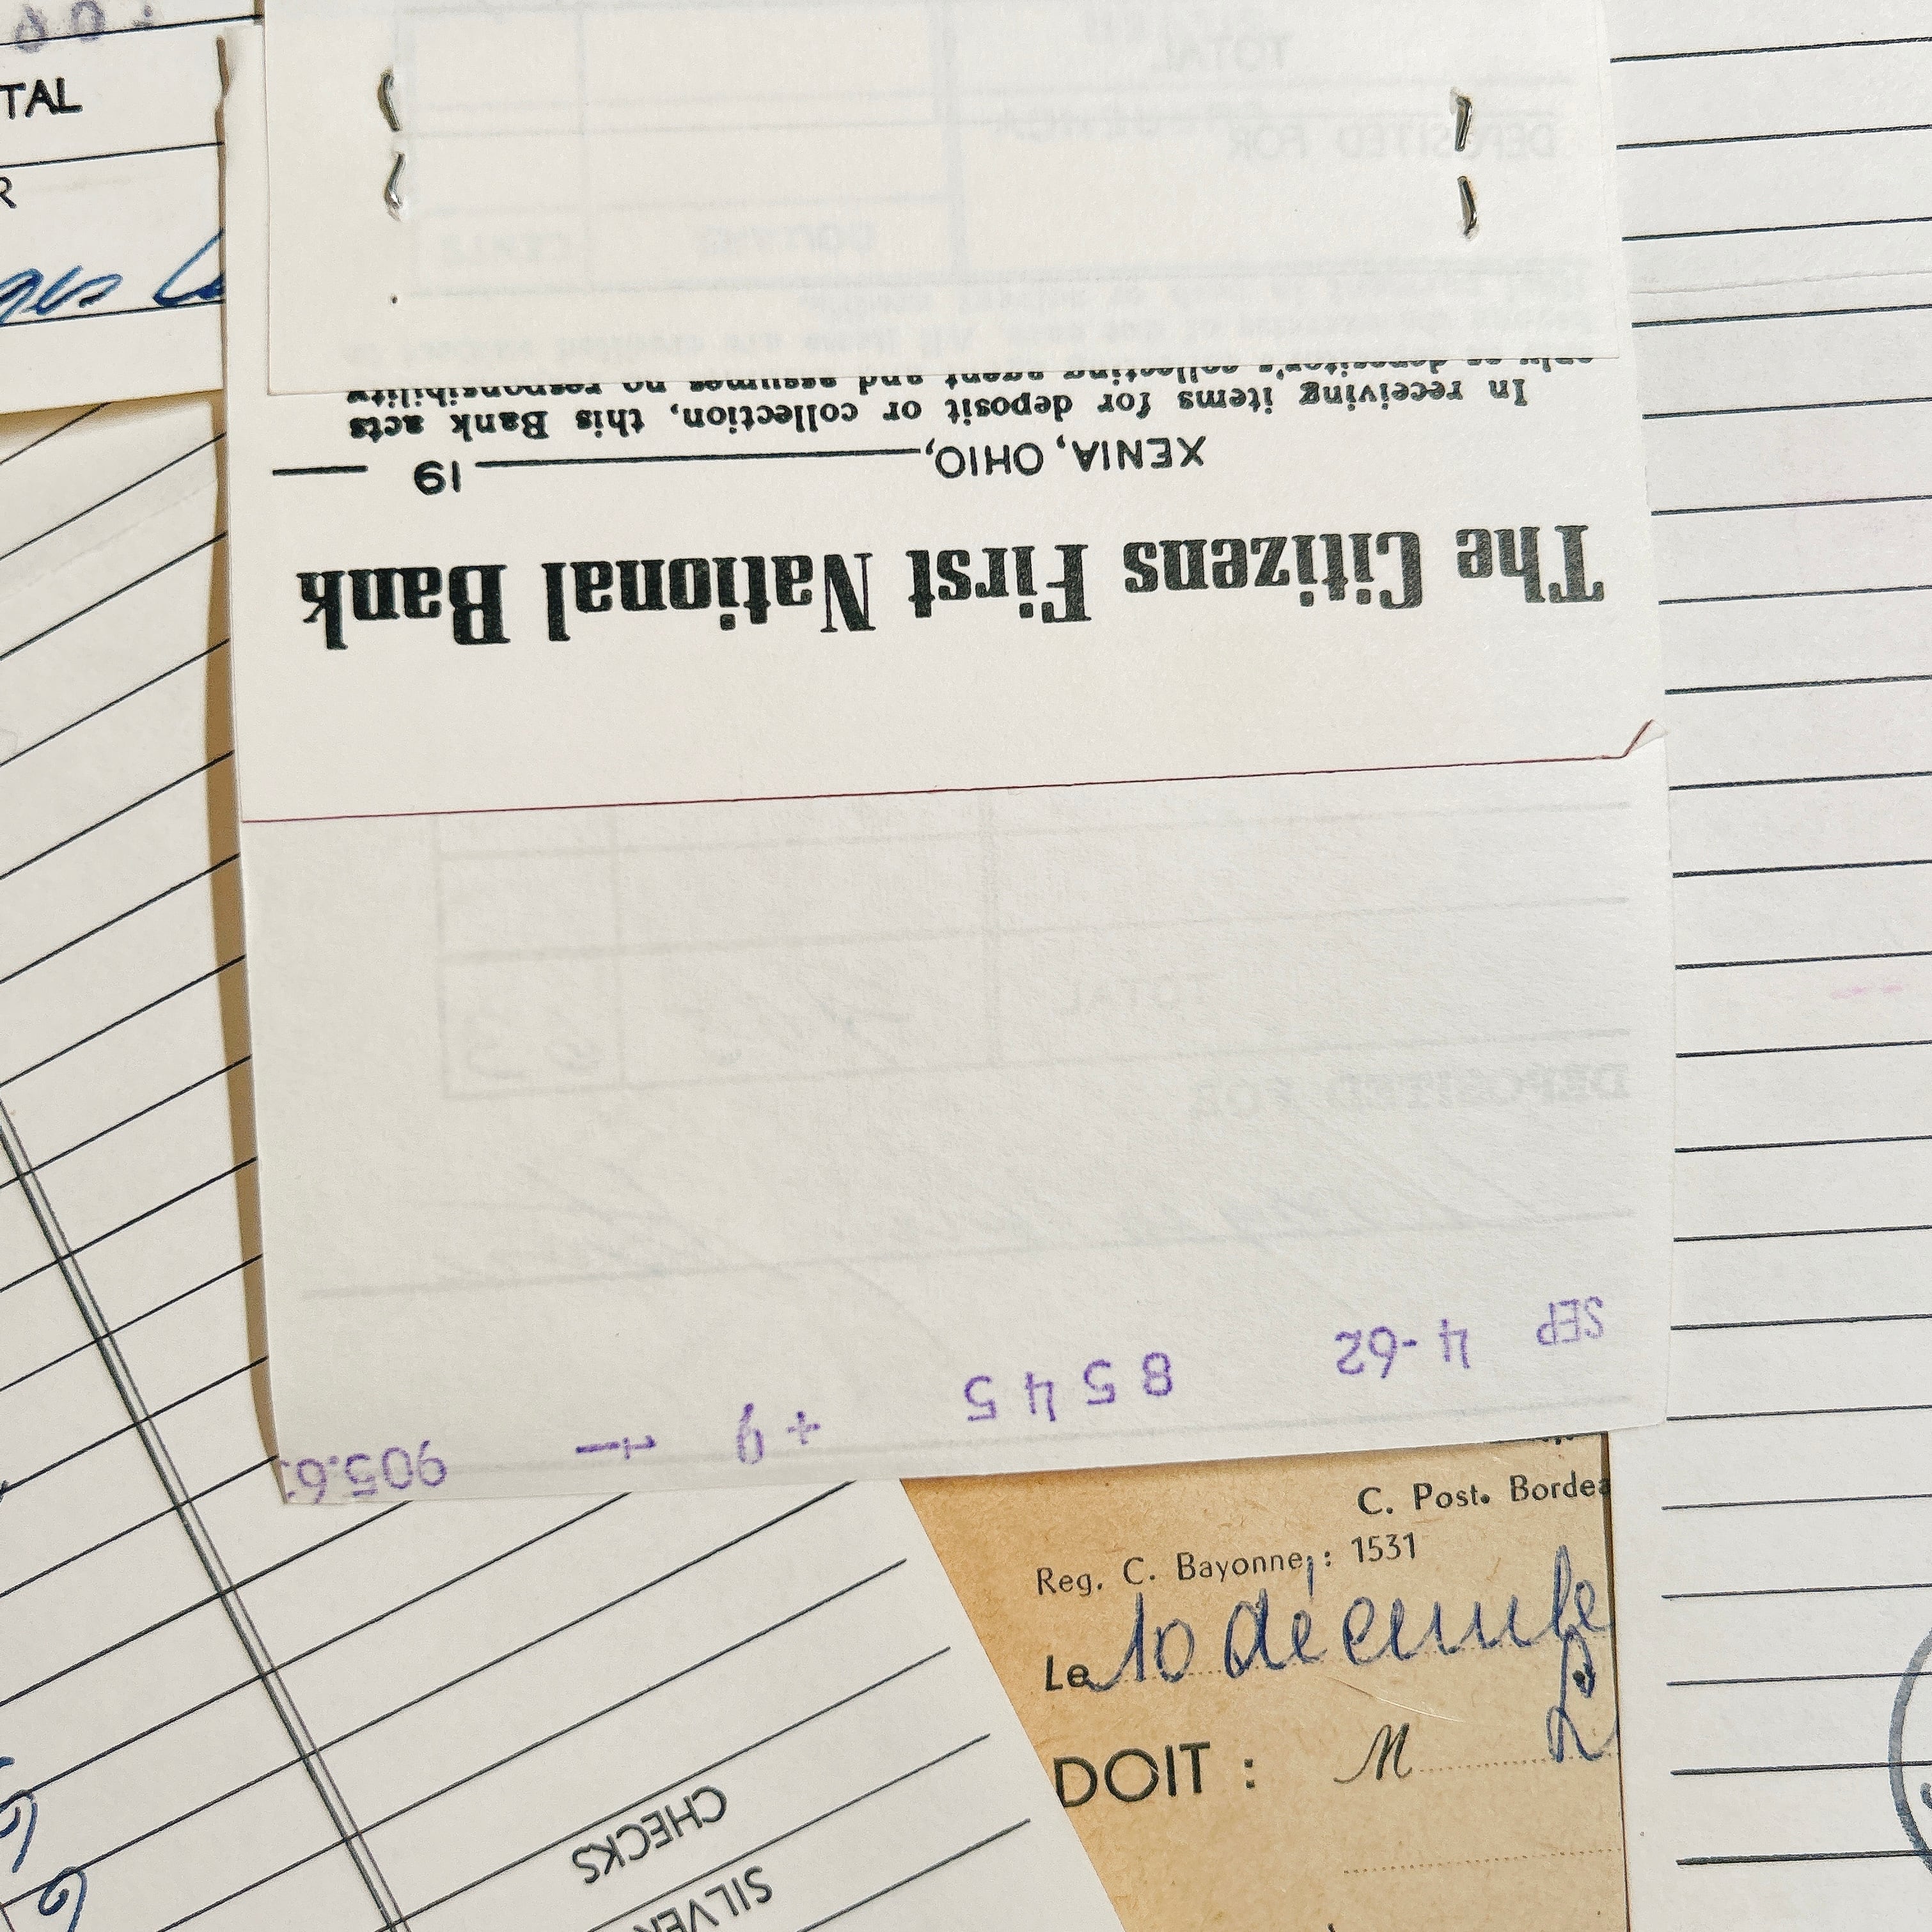 TAL
R
The Citizens First National Bank
XENIA, OHIO, 19
In receiving items for deposit or collection, this Bank acts
only as depositor's collecting agent and assumes no responsibility
TOTAL
DEPOSITED FOR
TOTAL
DEPOSITED FOR
SEP 4-62 8545 + 905.6
C. Post. Bordea
Reg. C. Bayonne : 1531
Le 10 décembre
DOIT : M
SILVER
CHECKS